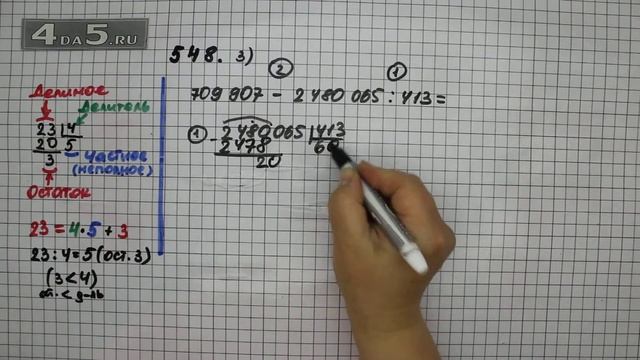 4DA5.RU
548. 3)
② ①
709 907 - 2 480 065 : 413 =
Делимое
Делитель
23 4
20 5
3
частное
(неполное)
Остаток
23 = 4 · 5 + 3
23 : 4 = 5 (ост. 3)
(3 < 4)
ост. < д-ль
① - 2 480 065 413
2478 60
20